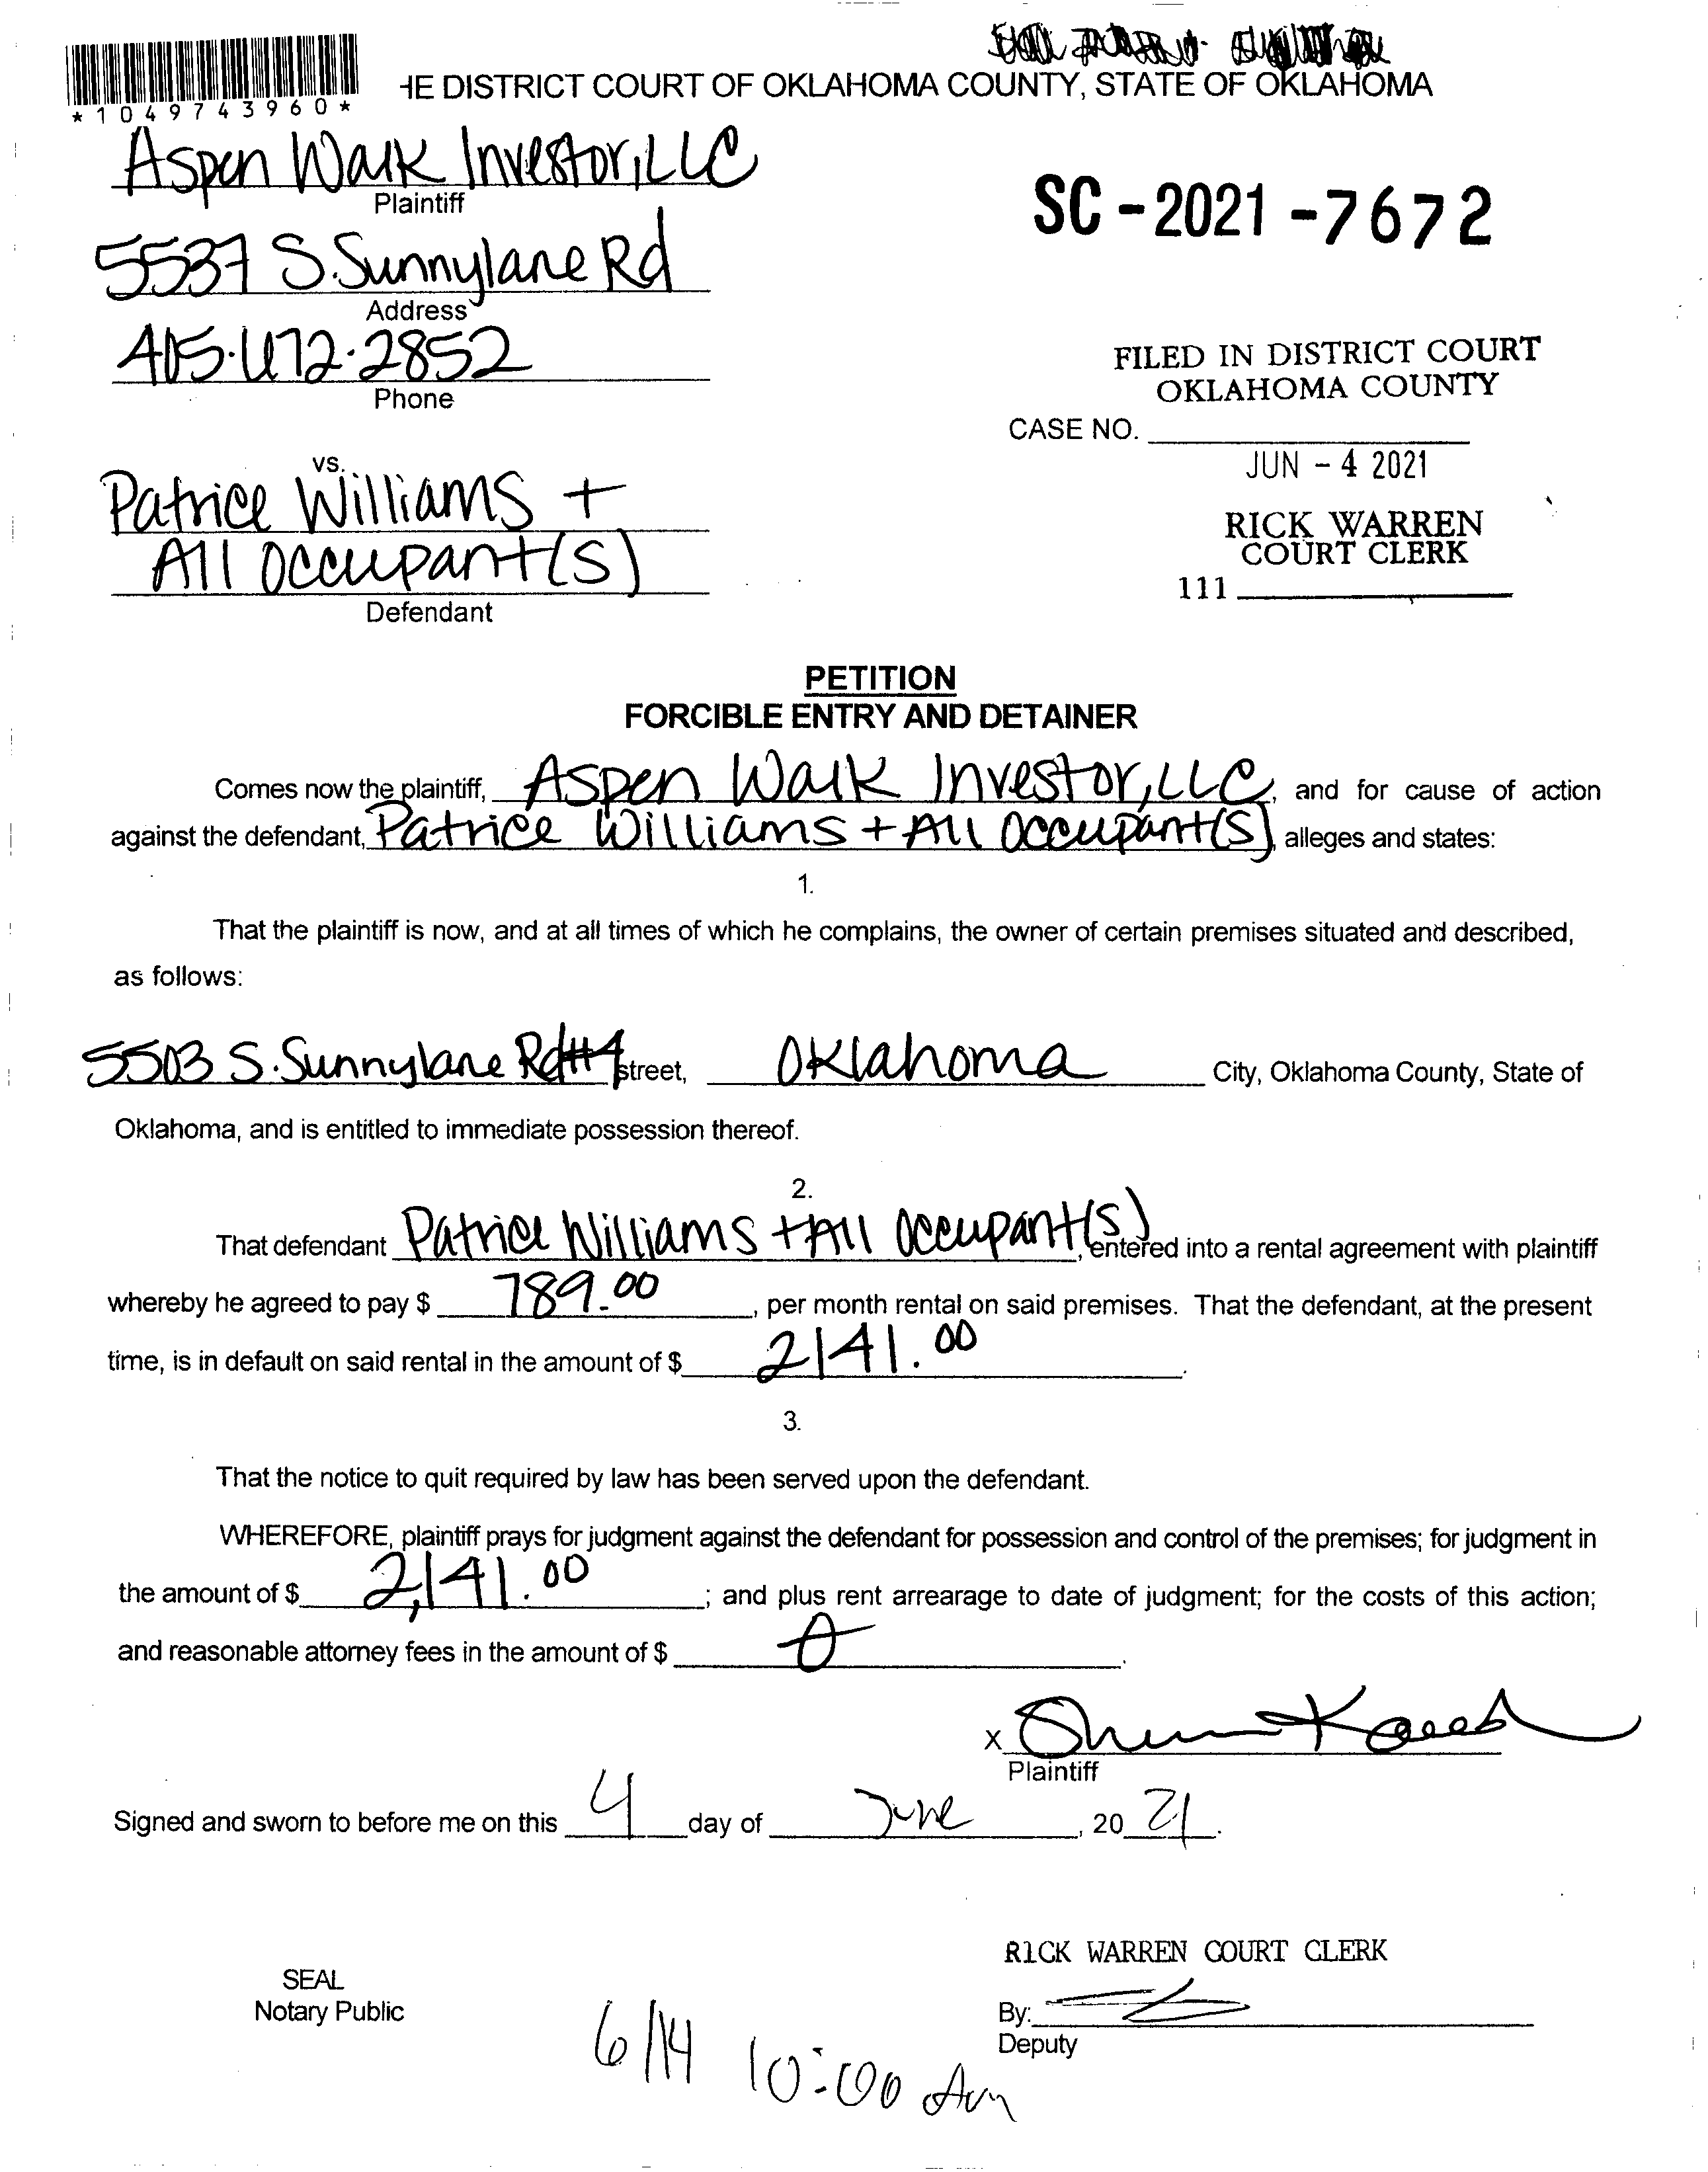 HE DISTRICT COURT OF OKLAHOMA COUNTY, STATE OF OKLAHOMA
*1049743960*
Aspen Walk Investor, LLC
Plaintiff
SC-2021-7672
5537 S. Sunnylane Rd
Address
405.472.2852
Phone
FILED IN DISTRICT COURT
OKLAHOMA COUNTY
CASE NO.
JUN - 4 2021
RICK WARREN
COURT CLERK
111
vs.
Patrice Williams +
All Occupant(s)
Defendant
PETITION
FORCIBLE ENTRY AND DETAINER
Comes now the plaintiff, Aspen Walk Investor, LLC, and for cause of action
against the defendant, Patrice Williams + All Occupant(s), alleges and states:
1.
That the plaintiff is now, and at all times of which he complains, the owner of certain premises situated and described,
as follows:
5503 S. Sunnylane Rd #4 street, Oklahoma City, Oklahoma County, State of
Oklahoma, and is entitled to immediate possession thereof.
2.
That defendant Patrice Williams + All Occupant(s), entered into a rental agreement with plaintiff
whereby he agreed to pay $ 789.00, per month rental on said premises. That the defendant, at the present
time, is in default on said rental in the amount of $ 2141.00.
3.
That the notice to quit required by law has been served upon the defendant.
WHEREFORE, plaintiff prays for judgment against the defendant for possession and control of the premises; for judgment in
the amount of $ 2,141.00; and plus rent arrearage to date of judgment; for the costs of this action;
and reasonable attorney fees in the amount of $ 0.
X
Plaintiff
Signed and sworn to before me on this 4 day of June, 20 21.
RICK WARREN COURT CLERK
SEAL
Notary Public
By:
Deputy
6/14 10:00 Am